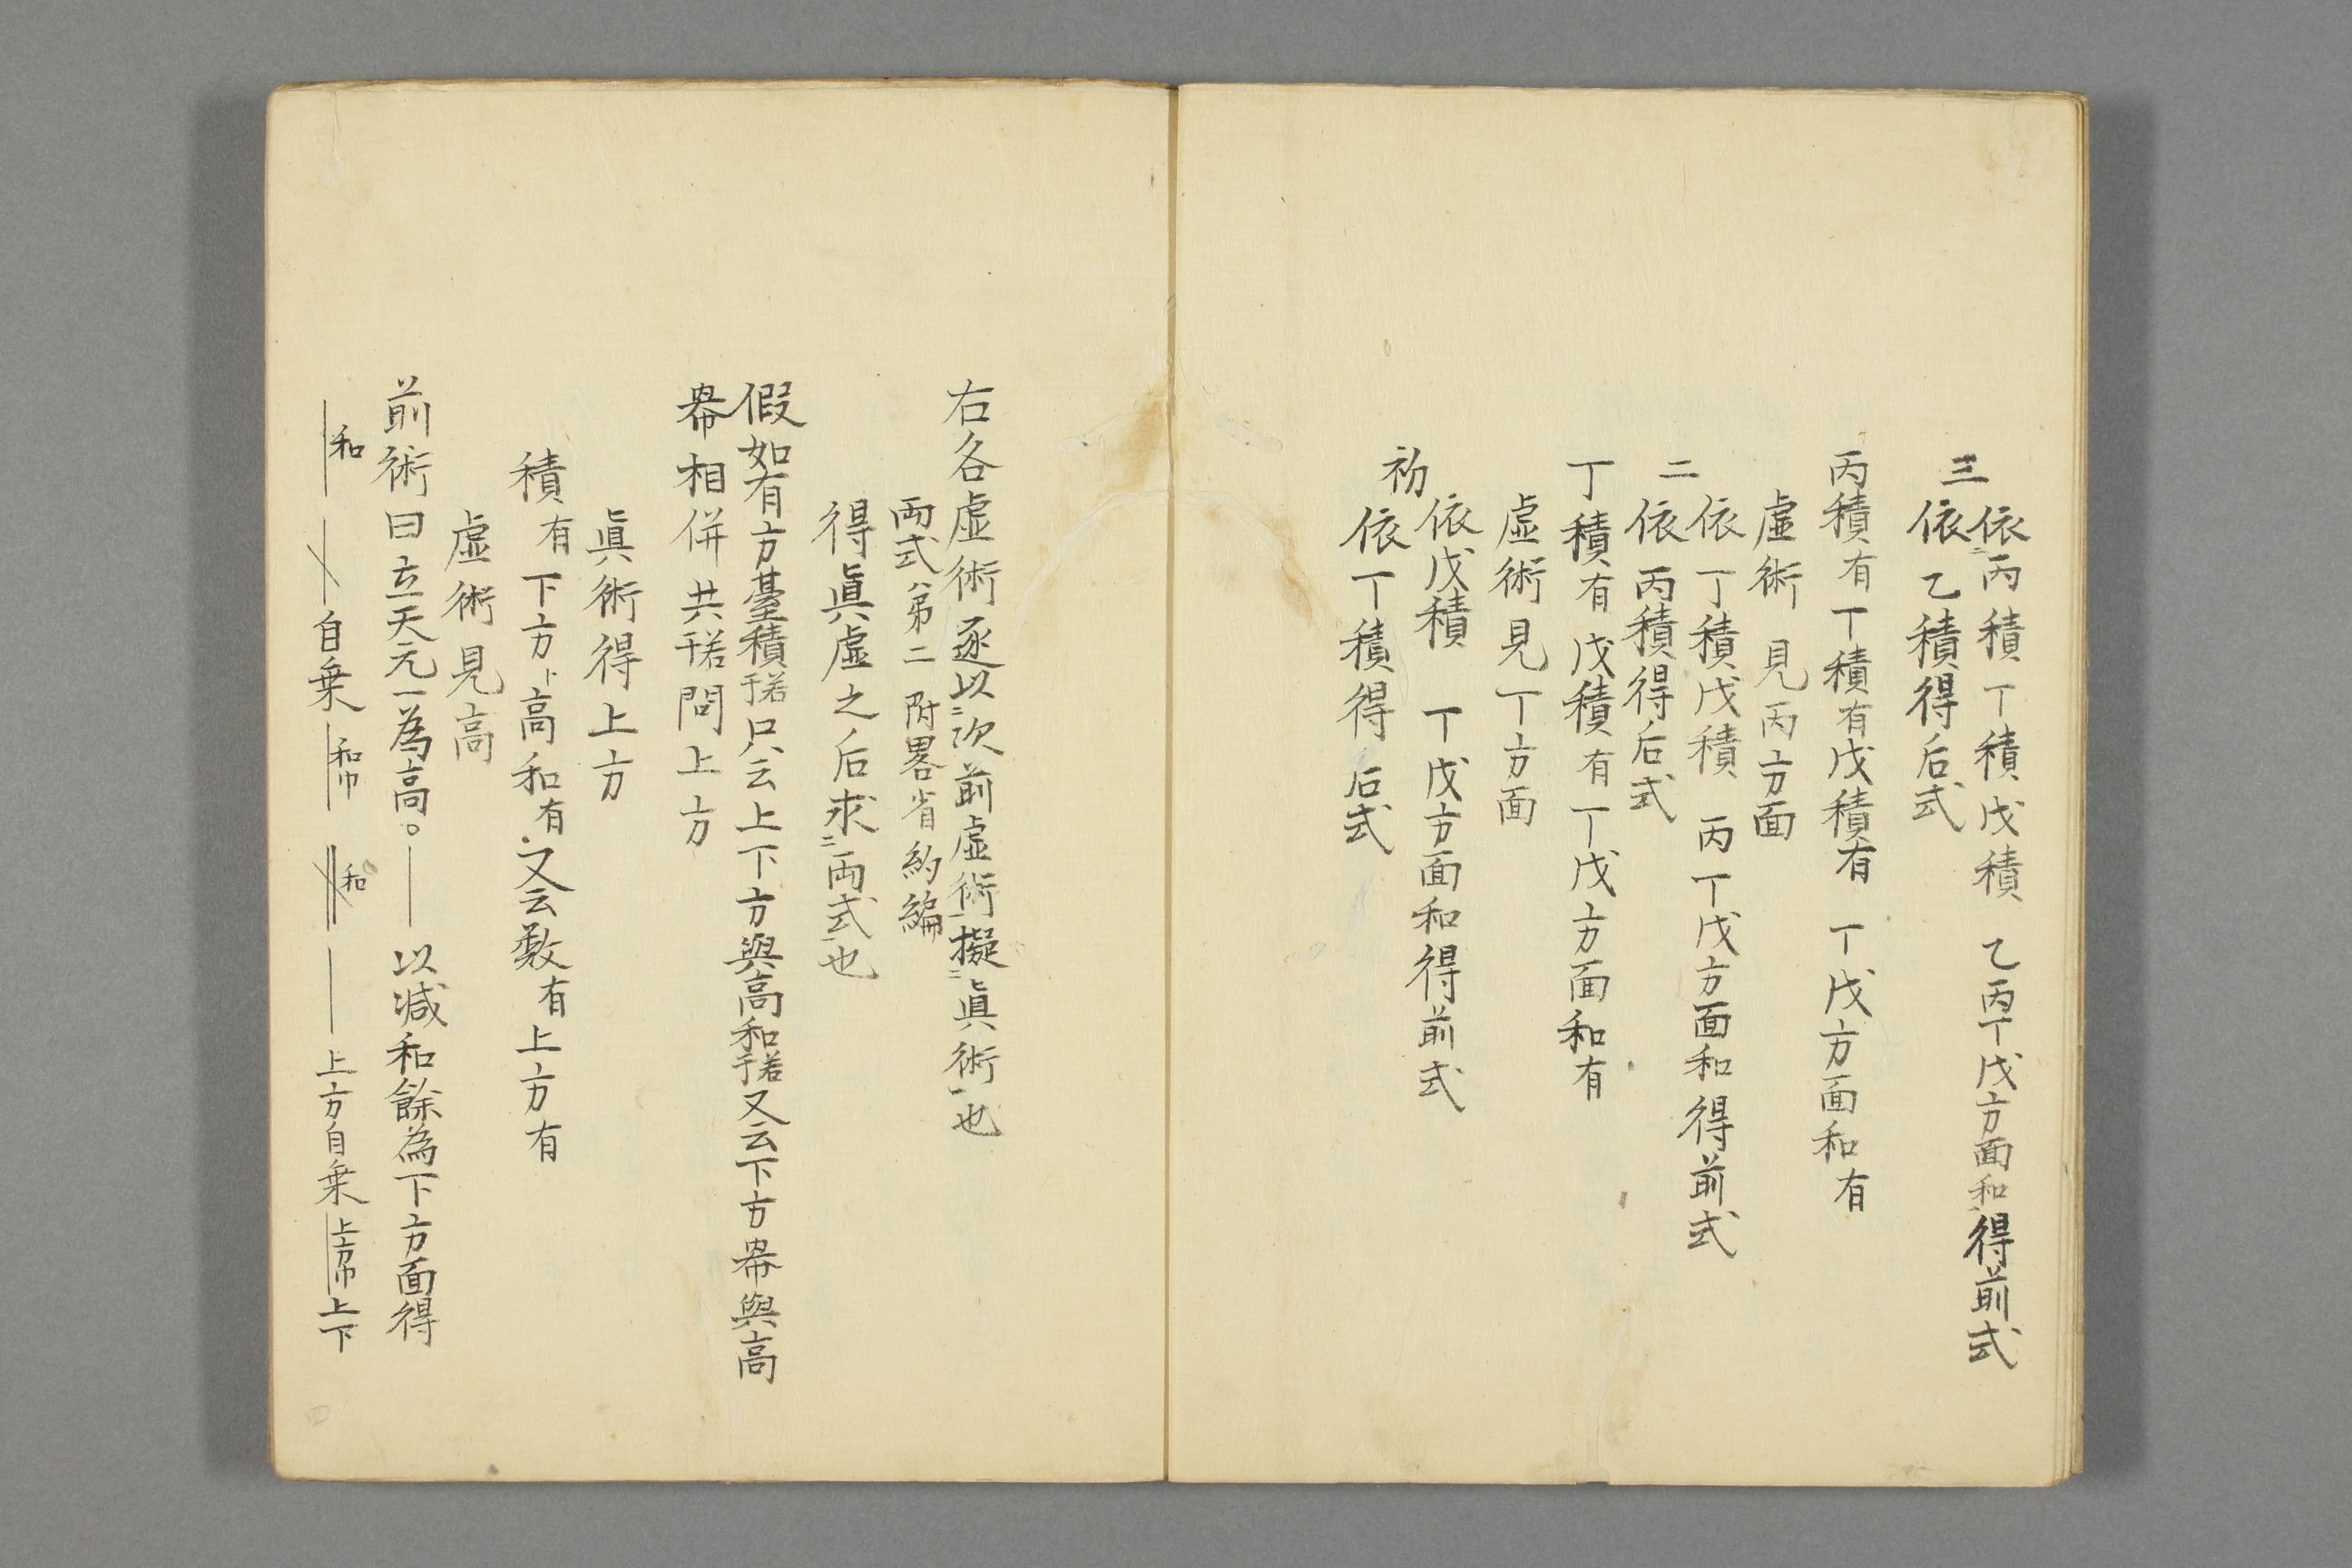 三
依丙積丁積戊積 乙丙丁戊方面和得前式
依乙積得后式
丙積有丁積有戊積有 丁戊方面和有
虛術 見丙方面
二
依丁積戊積 丙丁戊方面和得前式
依丙積得后式
丁積有戊積有丁戊方面和有
虛術見丁方面
初
依戊積 丁戊方面和得前式
依丁積得 后式
右各虛術逐以二次前虛術一擬二眞術一也
両式ハ第二附畧省約編
得眞虛之后求二両式一也
假如有方臺積若干只云上下方與高和若干又云下方冪與高
冪相併共若干問上方
眞術得上方
積有下方ト高和有又云數有上方有
虛術見高
前術曰立天元一為高。| 以減和餘為下方面得
和 自乗 和巾 和 上方自乗上方巾上下